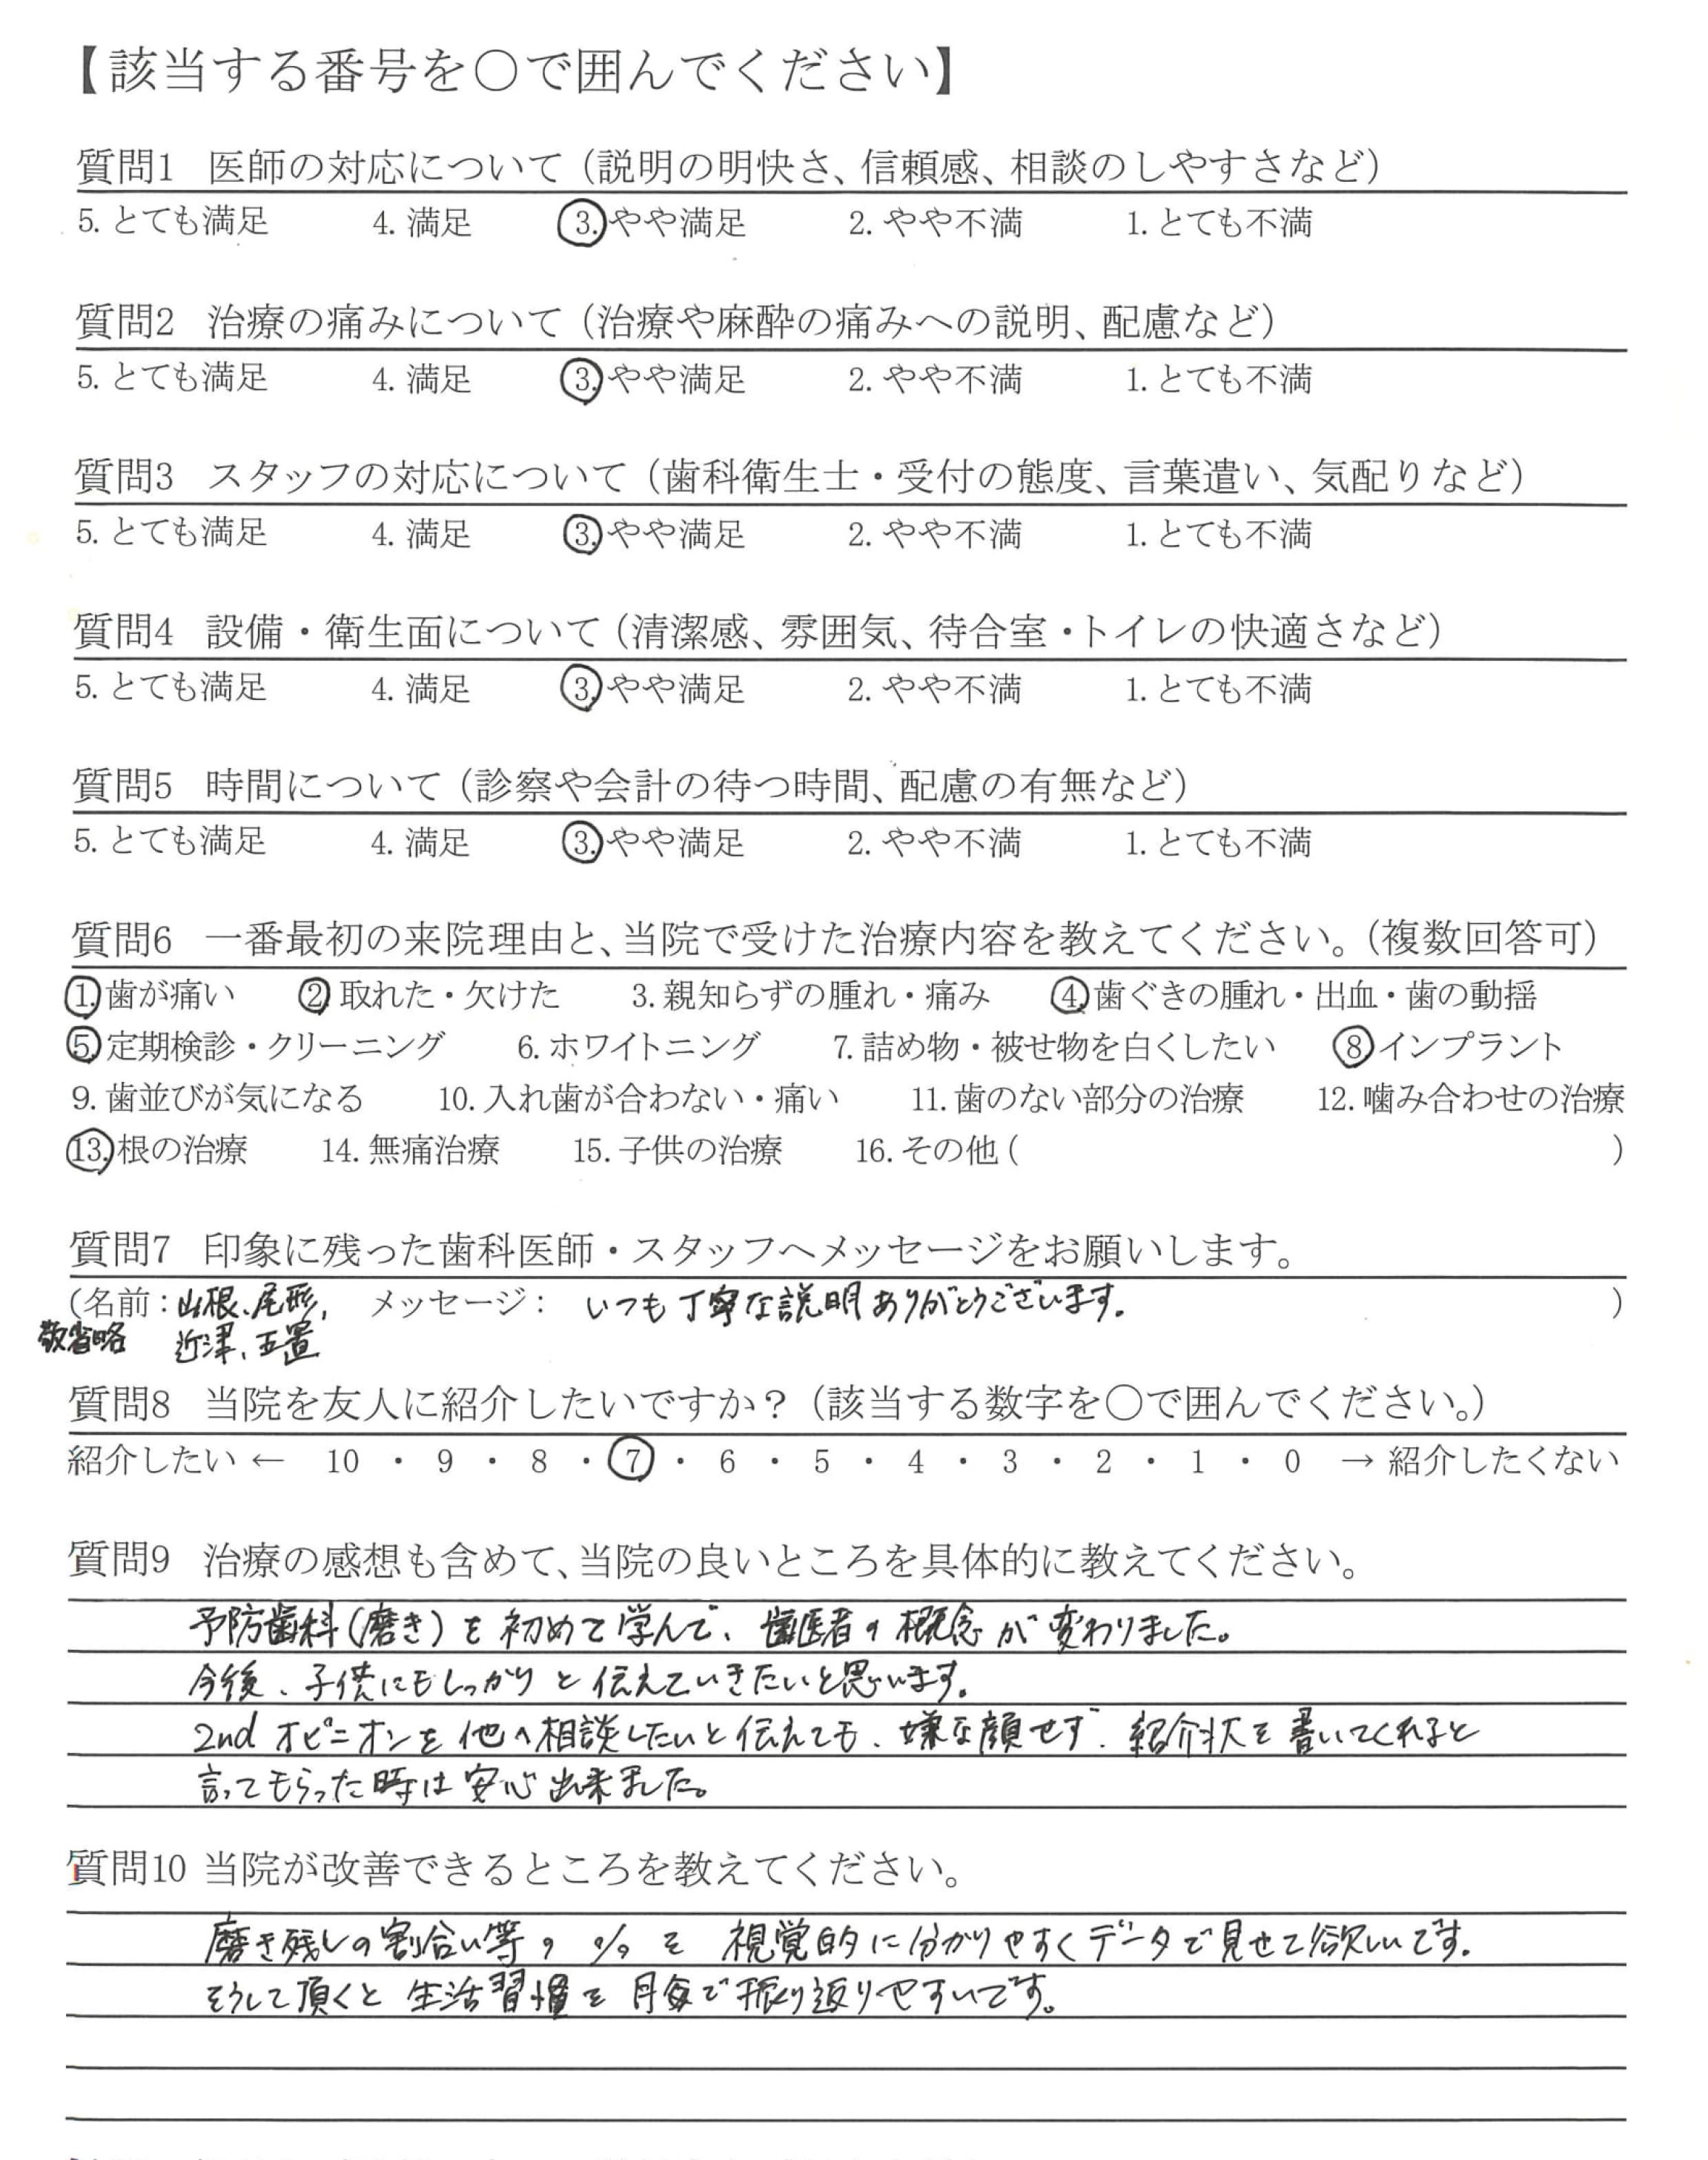 【該当する番号を○で囲んでください】
質問1 医師の対応について（説明の明快さ、信頼感、相談のしやすさなど）
5. とても満足 4. 満足 3. やや満足 2. やや不満 1. とても不満
質問2 治療の痛みについて（治療や麻酔の痛みへの説明、配慮など）
5. とても満足 4. 満足 3. やや満足 2. やや不満 1. とても不満
質問3 スタッフの対応について（歯科衛生士・受付の態度、言葉遣い、気配りなど）
5. とても満足 4. 満足 3. やや満足 2. やや不満 1. とても不満
質問4 設備・衛生面について（清潔感、雰囲気、待合室・トイレの快適さなど）
5. とても満足 4. 満足 3. やや満足 2. やや不満 1. とても不満
質問5 時間について（診察や会計の待つ時間、配慮の有無など）
5. とても満足 4. 満足 3. やや満足 2. やや不満 1. とても不満
質問6 一番最初の来院理由と、当院で受けた治療内容を教えてください。（複数回答可）
1. 歯が痛い 2. 取れた・欠けた 3. 親知らずの腫れ・痛み 4. 歯ぐきの腫れ・出血・歯の動揺
5. 定期検診・クリーニング 6. ホワイトニング 7. 詰め物・被せ物を白くしたい 8. インプラント
9. 歯並びが気になる 10. 入れ歯が合わない・痛い 11. 歯のない部分の治療 12. 噛み合わせの治療
13. 根の治療 14. 無痛治療 15. 子供の治療 16. その他（ ）
質問7 印象に残った歯科医師・スタッフへメッセージをお願いします。
（名前：山根、尾形、 メッセージ： いつも丁寧な説明ありがとうございます。 ）
敬省略 近津、玉置
質問8 当院を友人に紹介したいですか？（該当する数字を○で囲んでください。）
紹介したい ← 10 ・ 9 ・ 8 ・ 7 ・ 6 ・ 5 ・ 4 ・ 3 ・ 2 ・ 1 ・ 0 → 紹介したくない
質問9 治療の感想も含めて、当院の良いところを具体的に教えてください。
予防歯科（磨き）を初めて学んで、歯医者の概念が変わりました。
今後、子供にもしっかりと伝えていきたいと思います。
2nd オピニオンを他へ相談したいと伝えても、嫌な顔せず、紹介状を書いてくれると
言ってもらった時は安心出来ました。
質問10 当院が改善できるところを教えてください。
磨き残しの割合い等の%を視覚的に分かりやすくデータで見せて欲しいです。
そうして頂くと生活習慣を月毎で振り返りやすいです。